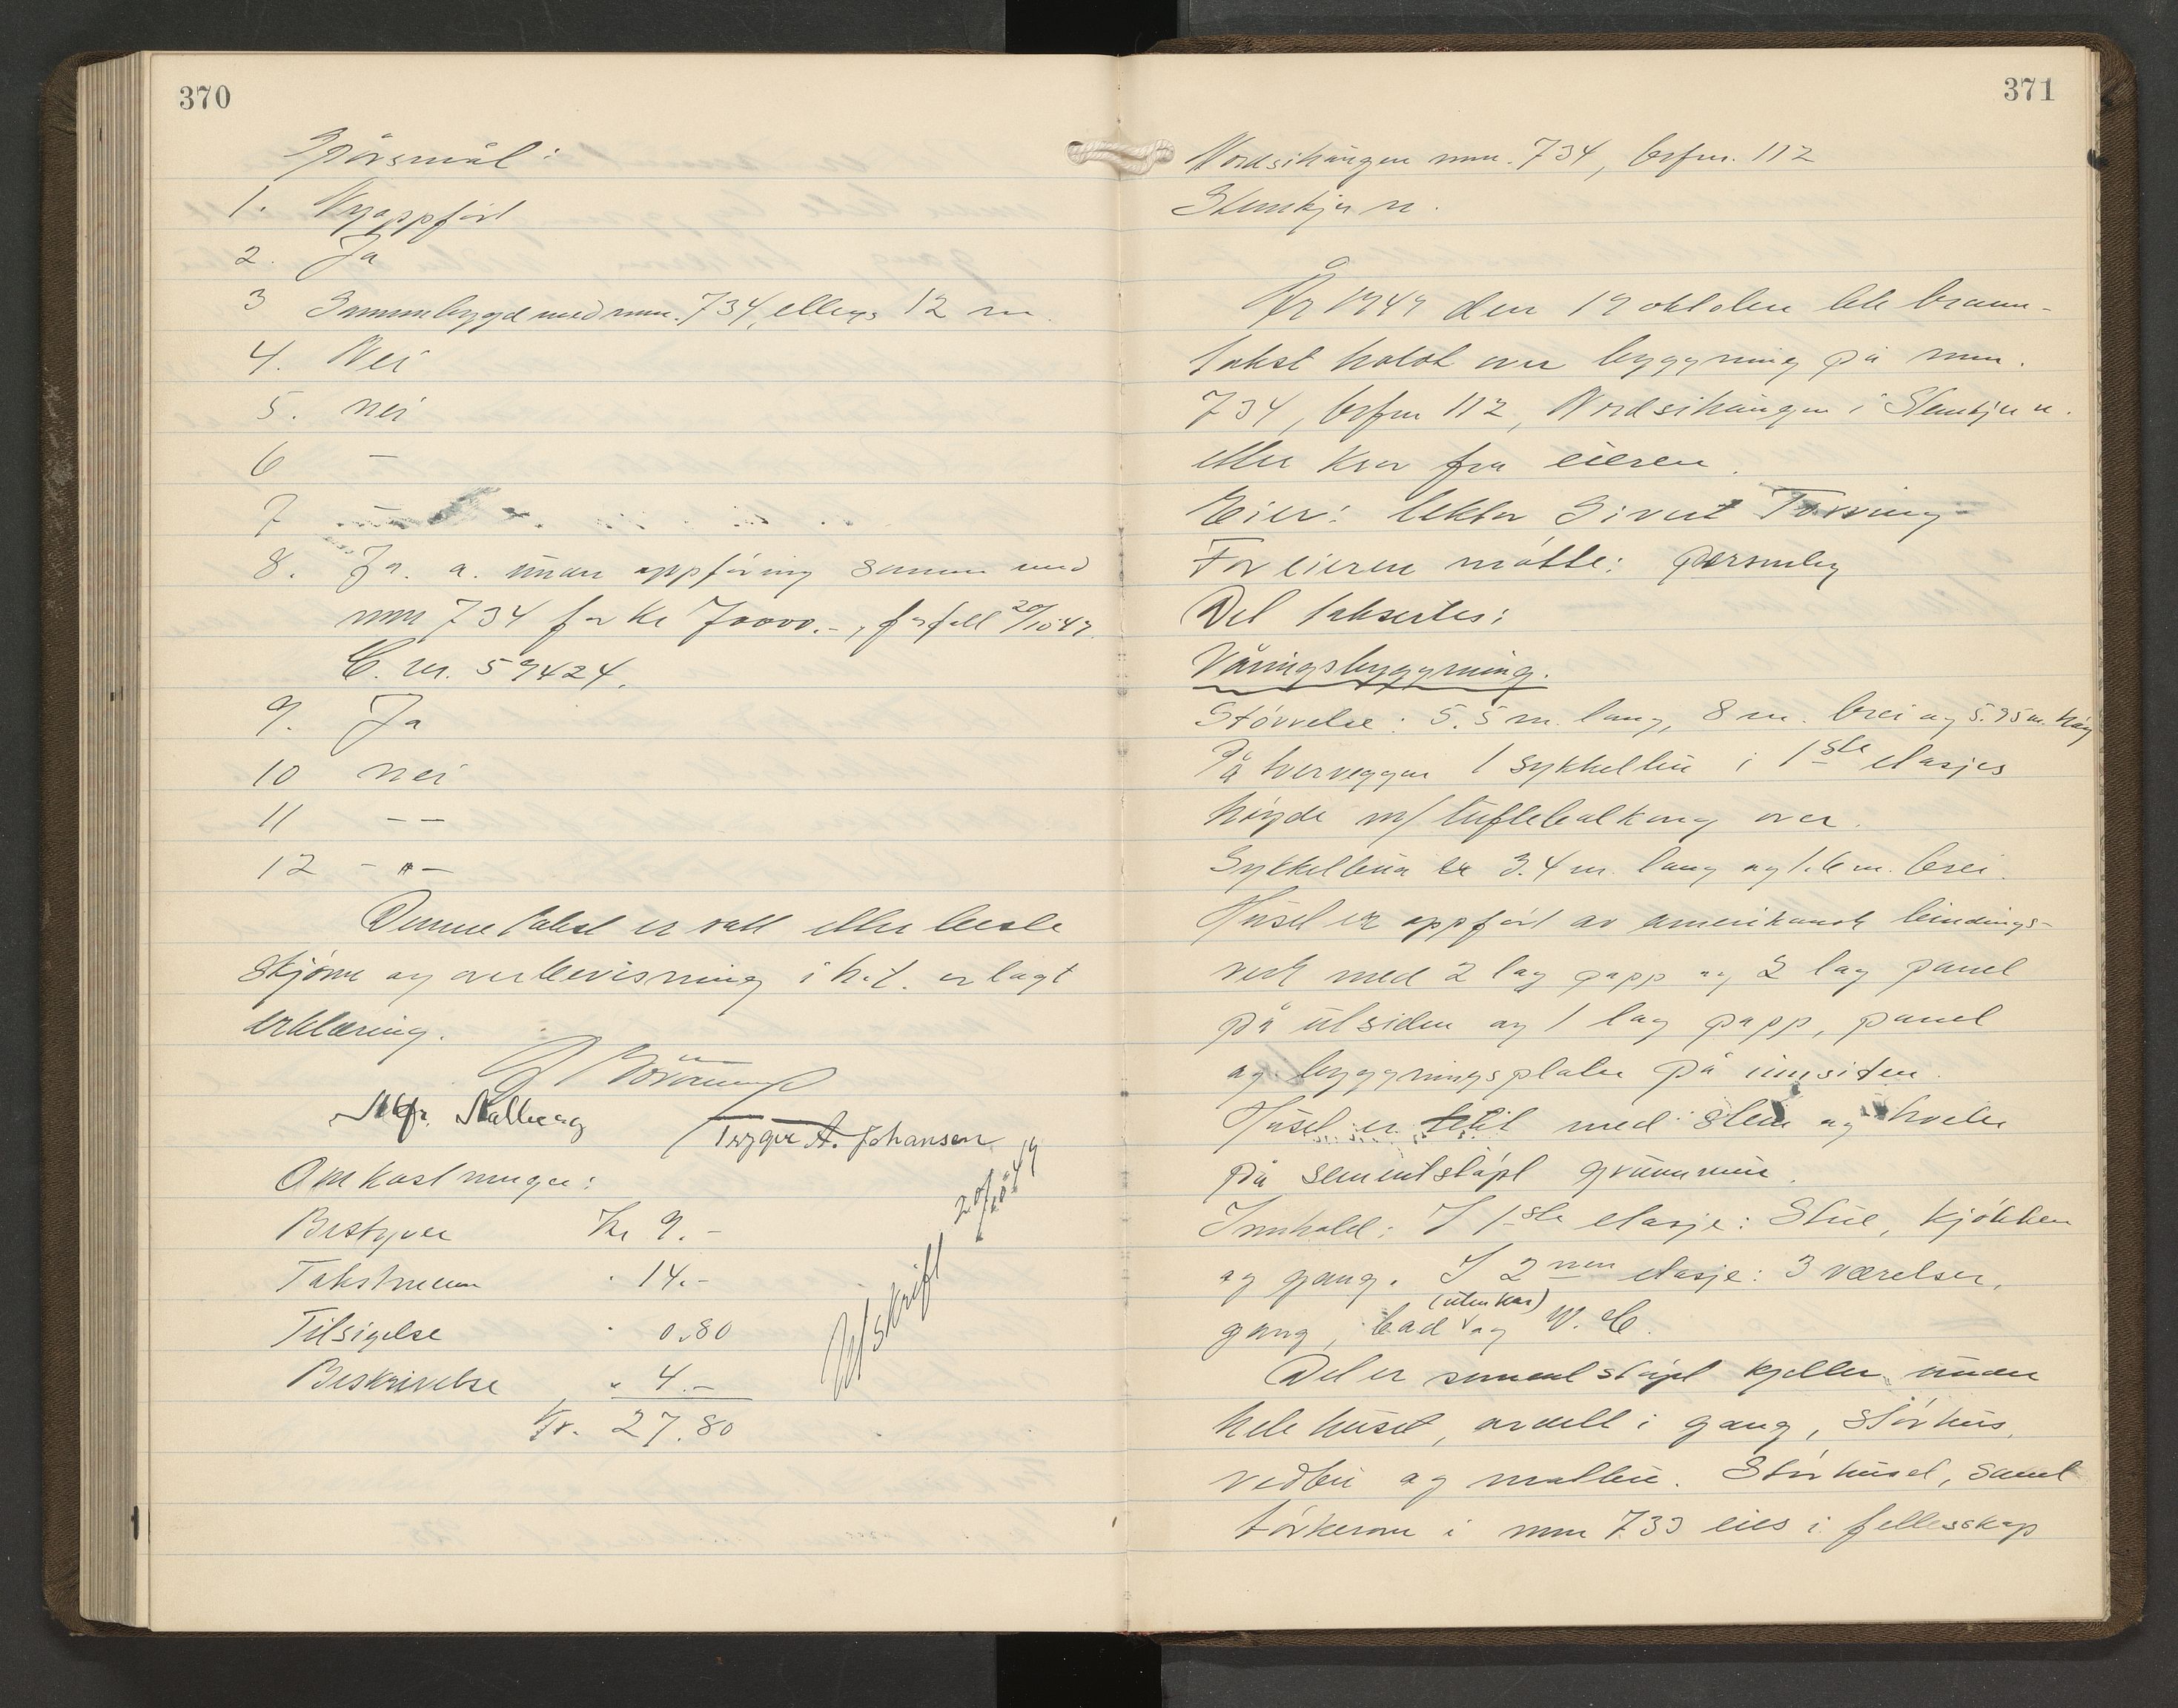 370
Spørsmål:
1. Nyoppført
2. Ja
3 Sammebygd med mnr. 734, ellers 12 m.
4. Nei
5. nei
6 –
7
8. Ja. a. under oppføring samme med
mnr 734 for kr 70000.-, forfall 20/10 49.
C. nr. 59424.
9. Ja
10 nei
11 – –
12 – " –
Denne takst er satt etter beste
skjønn og overbevisning i h.t. avlagt
erklæring.
Trygve A. Johansen
Omkostninger:
Bestyrer Kr 9.–
Takstmenn " 14.–
Tilsigelse " 0.80
Beskrivelse " 4.–
Kr. 27.80
Utskrift 20/10 49
371
Nordsihaugen mnr. 734, brfnr. 112
Steinkjer
År 1949 den 19 oktober ble brann-
takst holdt over byggning på mnr.
734, brfnr 112, Nordsihaugen i Steinkjer
etter krav fra eieren.
Eier: lektor Sivert Tørring
For eieren møtte: personlig
Det taksertes:
Våningsbyggning.
Størrelse: 5.5 m. lang, 8 m. brei og 5.95 m. høg
På tverveggen 1 sykkelbu i 1ste etasjes
høyde m/ luftebalkong over.
Sykkelbua er 3.4 m. lang og 1.6 m. brei.
Huset er oppført av amerikansk bindings-
verk med 2 lag papp og 2 lag panel
på utsiden og 1 lag papp, panel
og byggningsplater på innsiden.
Huset er tekt med sten og hviler
på sementstøpt grunnmur.
Innhold: I 1ste etasje: Stue, kjøkken
og gang. I 2nen etasje: 3 værelser,
gang, bad (uten kar) og W. C.
Det er sementstøpt kjeller under
hele huset, avdelt i gang, størhus,
vedbu og matbu. Størhuset, samt
tørkerom i mnr 733 eies i fellesskap